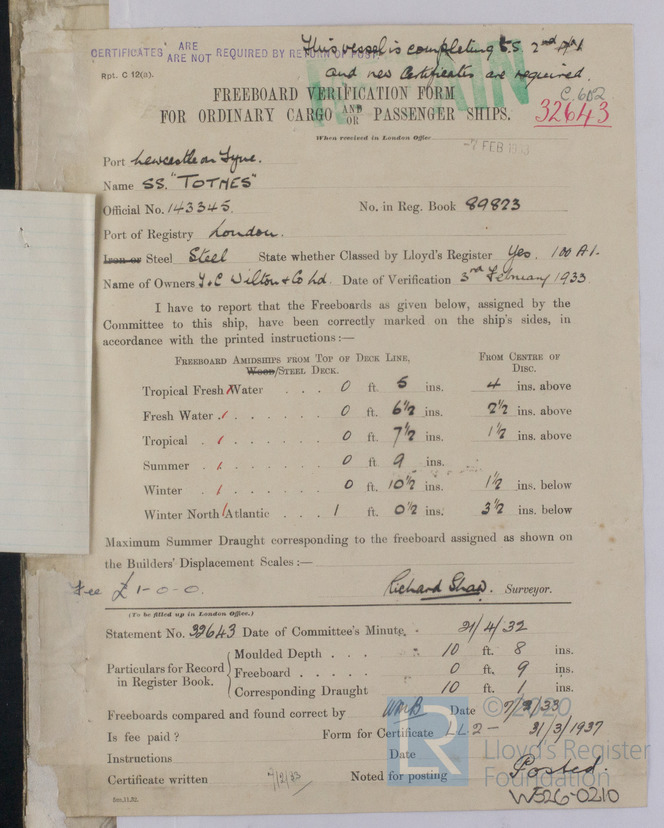 This vessel is completing S.S. 2nd No 1
CERTIFICATES ARE REQUIRED BY RETURN OF POST.
ARE NOT
and new Certificates are required.
Rpt. C 12(a).
FREEBOARD VERIFICATION FORM
C.602
FOR ORDINARY CARGO AND OR PASSENGER SHIPS.
32643
When received in London Office
-7 FEB 1933
Port Newcastle on Tyne.
Name SS. "TOTNES"
Official No. 143345. No. in Reg. Book 89823
Port of Registry London.
Iron or Steel Steel State whether Classed by Lloyd's Register Yes. 100 A1.
Name of Owners T & C Wilton & Co Ltd. Date of Verification 3rd February 1933
I have to report that the Freeboards as given below, assigned by the
Committee to this ship, have been correctly marked on the ship's sides, in
accordance with the printed instructions:—
FREEBOARD AMIDSHIPS FROM TOP OF DECK LINE, FROM CENTRE OF
WOOD/STEEL DECK. DISC.
Tropical Fresh Water . . . 0 ft. 5 ins. 4 ins. above
Fresh Water . . . . . . 0 ft. 6½ ins. 2½ ins. above
Tropical . . . . . . 0 ft. 7½ ins. 1½ ins. above
Summer . . . . . . 0 ft. 9 ins.
Winter . . . . . . 0 ft. 10½ ins. 1½ ins. below
Winter North Atlantic . . . 1 ft. 0½ ins. 3½ ins. below
Maximum Summer Draught corresponding to the freeboard assigned as shown on
the Builders' Displacement Scales:—
Fee £1-0-0. Richard Shaw. Surveyor.
(To be filled up in London Office.)
Statement No. 32643 Date of Committee's Minute. 21/4/32
Particulars for Record in Register Book.
Moulded Depth . . . 10 ft. 8 ins.
Freeboard . . . . . 0 ft. 9 ins.
Corresponding Draught 10 ft. 1 ins.
Freeboards compared and found correct by WMB Date 7/2/33
Is fee paid? Form for Certificate LL.2 - 31/3/1937
Instructions Date
Certificate written 7/12/33 Noted for posting Posted
W526-0210
© 2020
LR
Lloyd's Register
Foundation